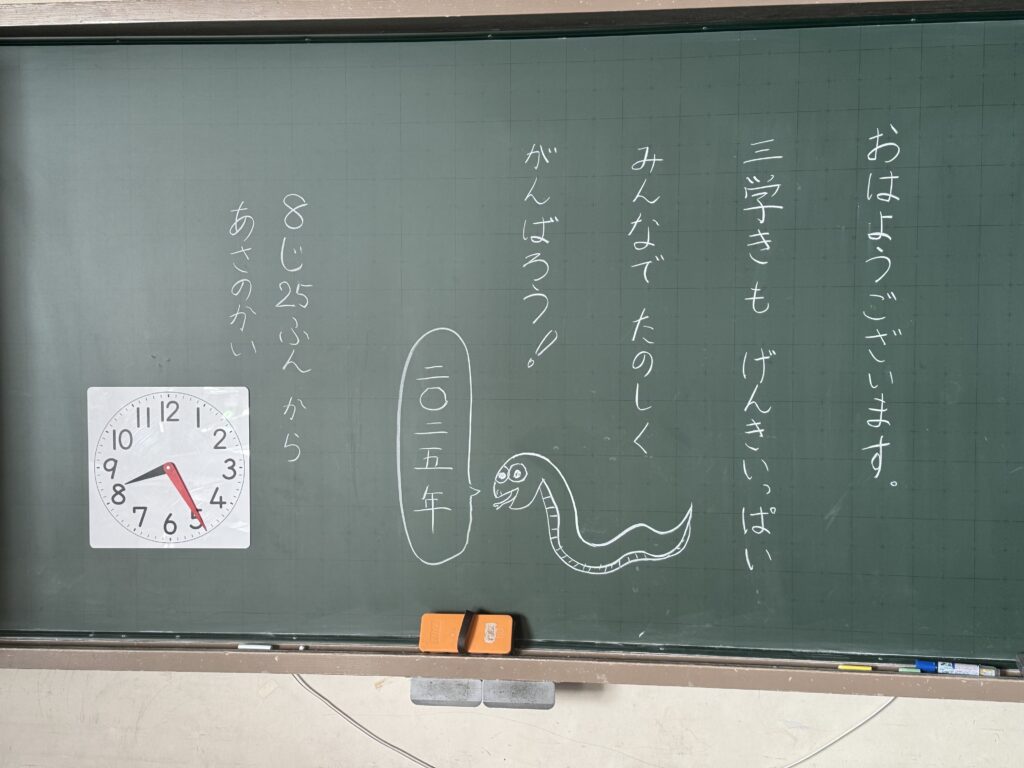 おはようございます。
三学きも げんきいっぱい
みんなで たのしく
がんばろう!
二〇二五年
8じ25ふんから
あさのかい
12
1
2
3
4
5
6
7
8
9
10
11